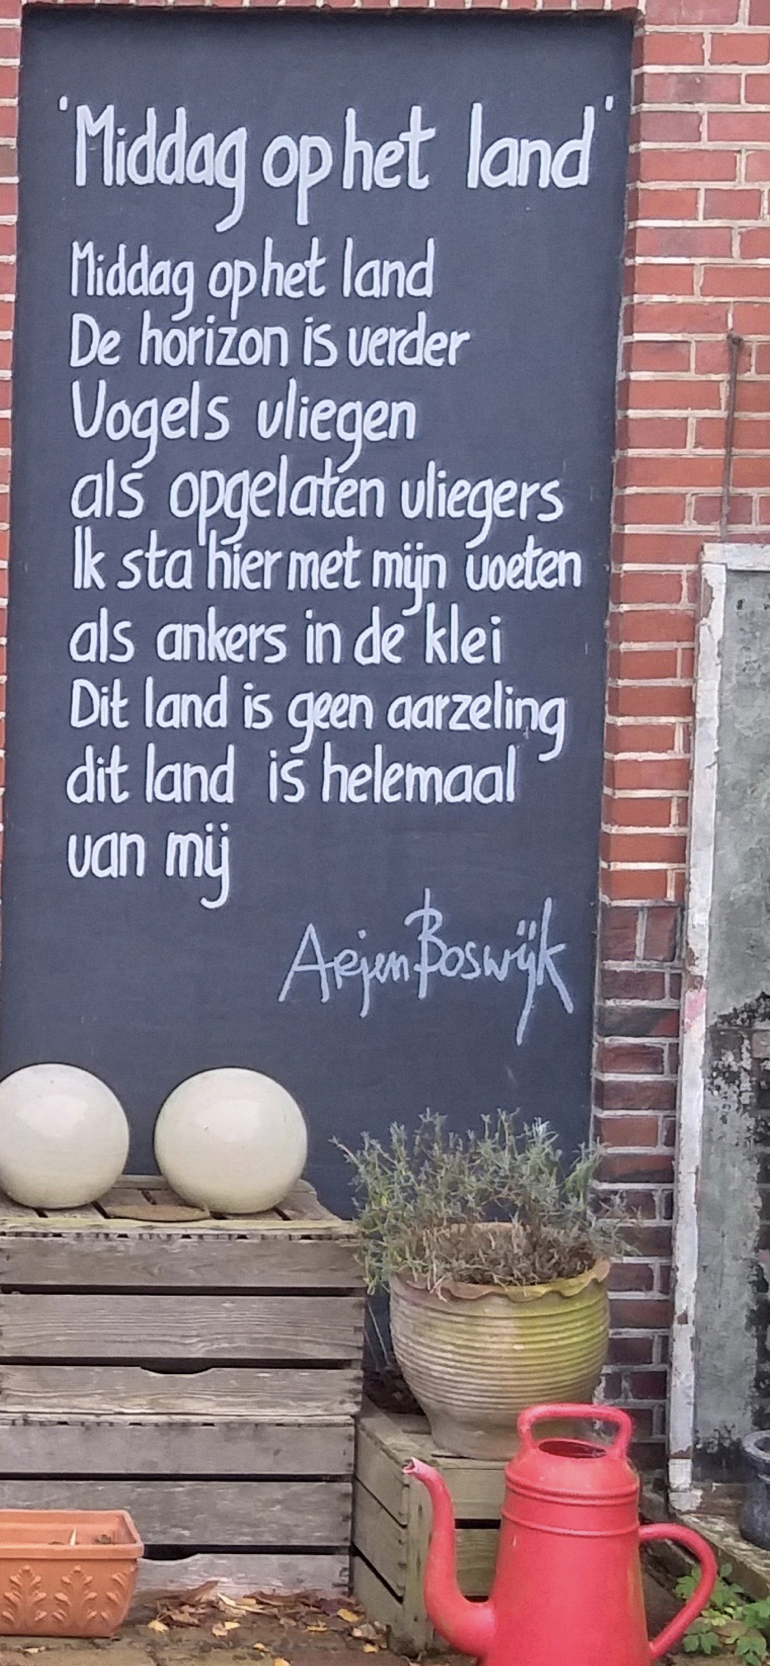 'Middag op het land'
Middag op het land
De horizon is verder
Vogels vliegen
als opgelaten vliegers
Ik sta hier met mijn voeten
als ankers in de klei
Dit land is geen aarzeling
dit land is helemaal
van mij
Arjen Boswijk